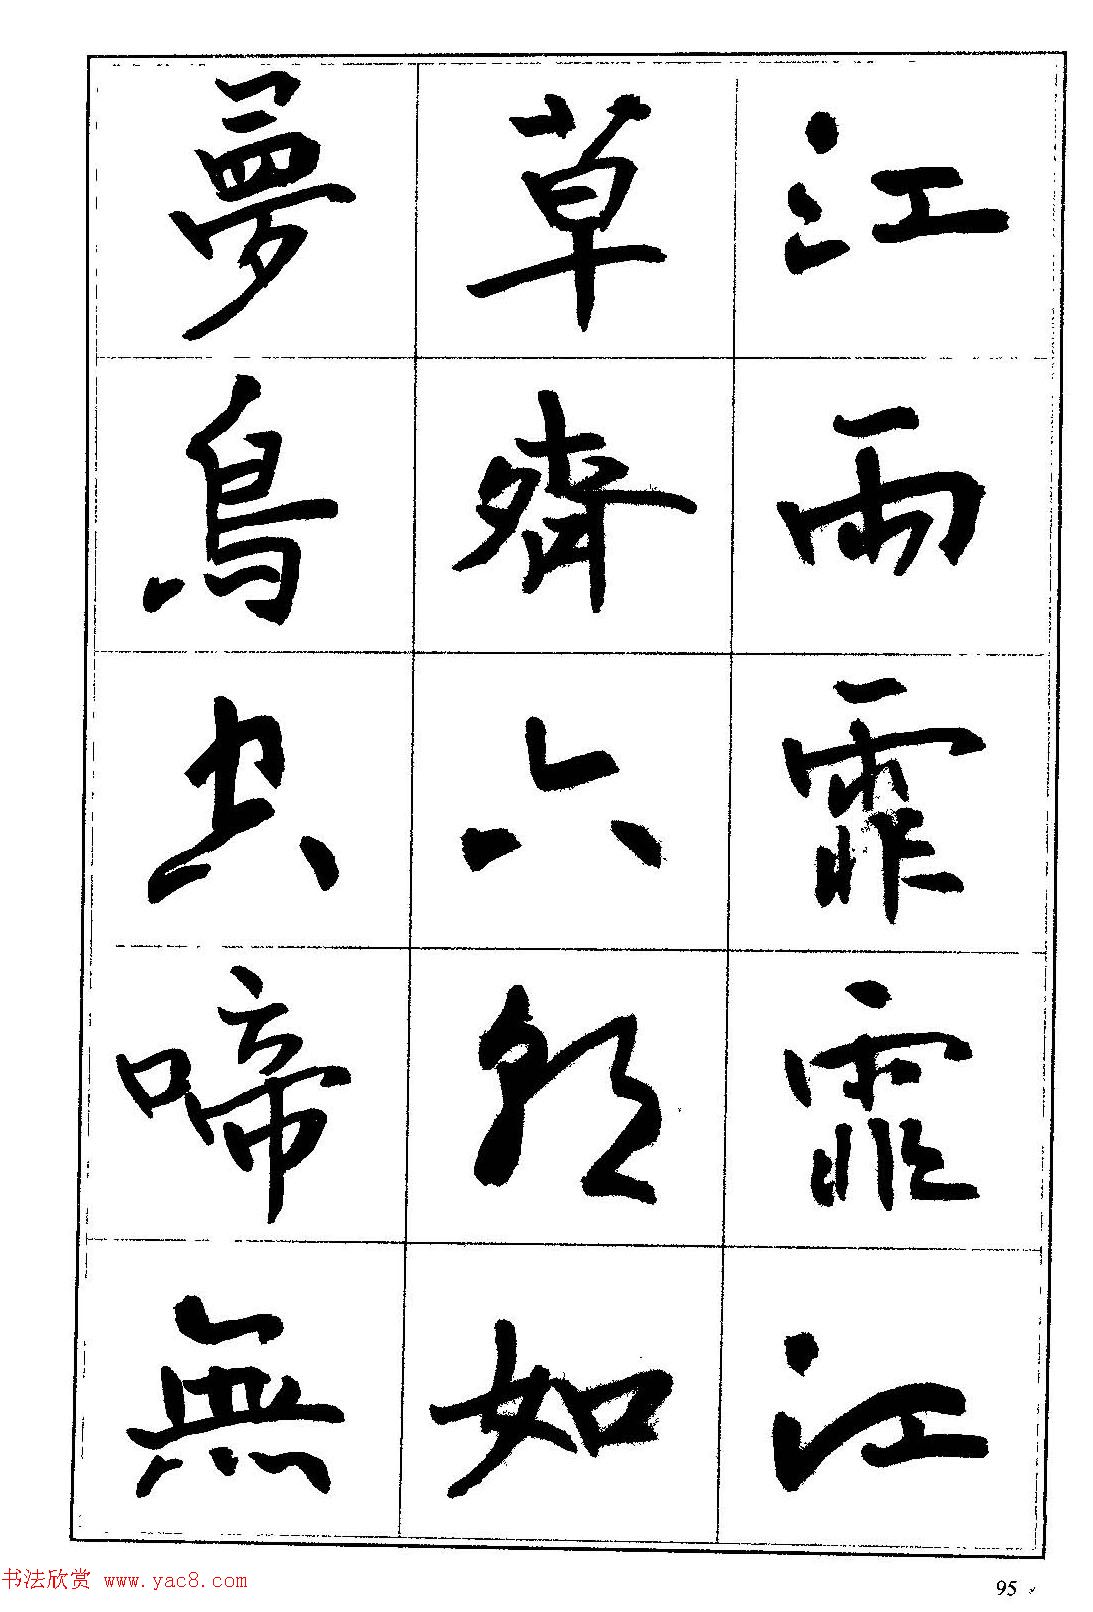 江雨霏霏江
草齊六朝如
夢鳥空啼無
书法欣赏 www.yac8.com
95